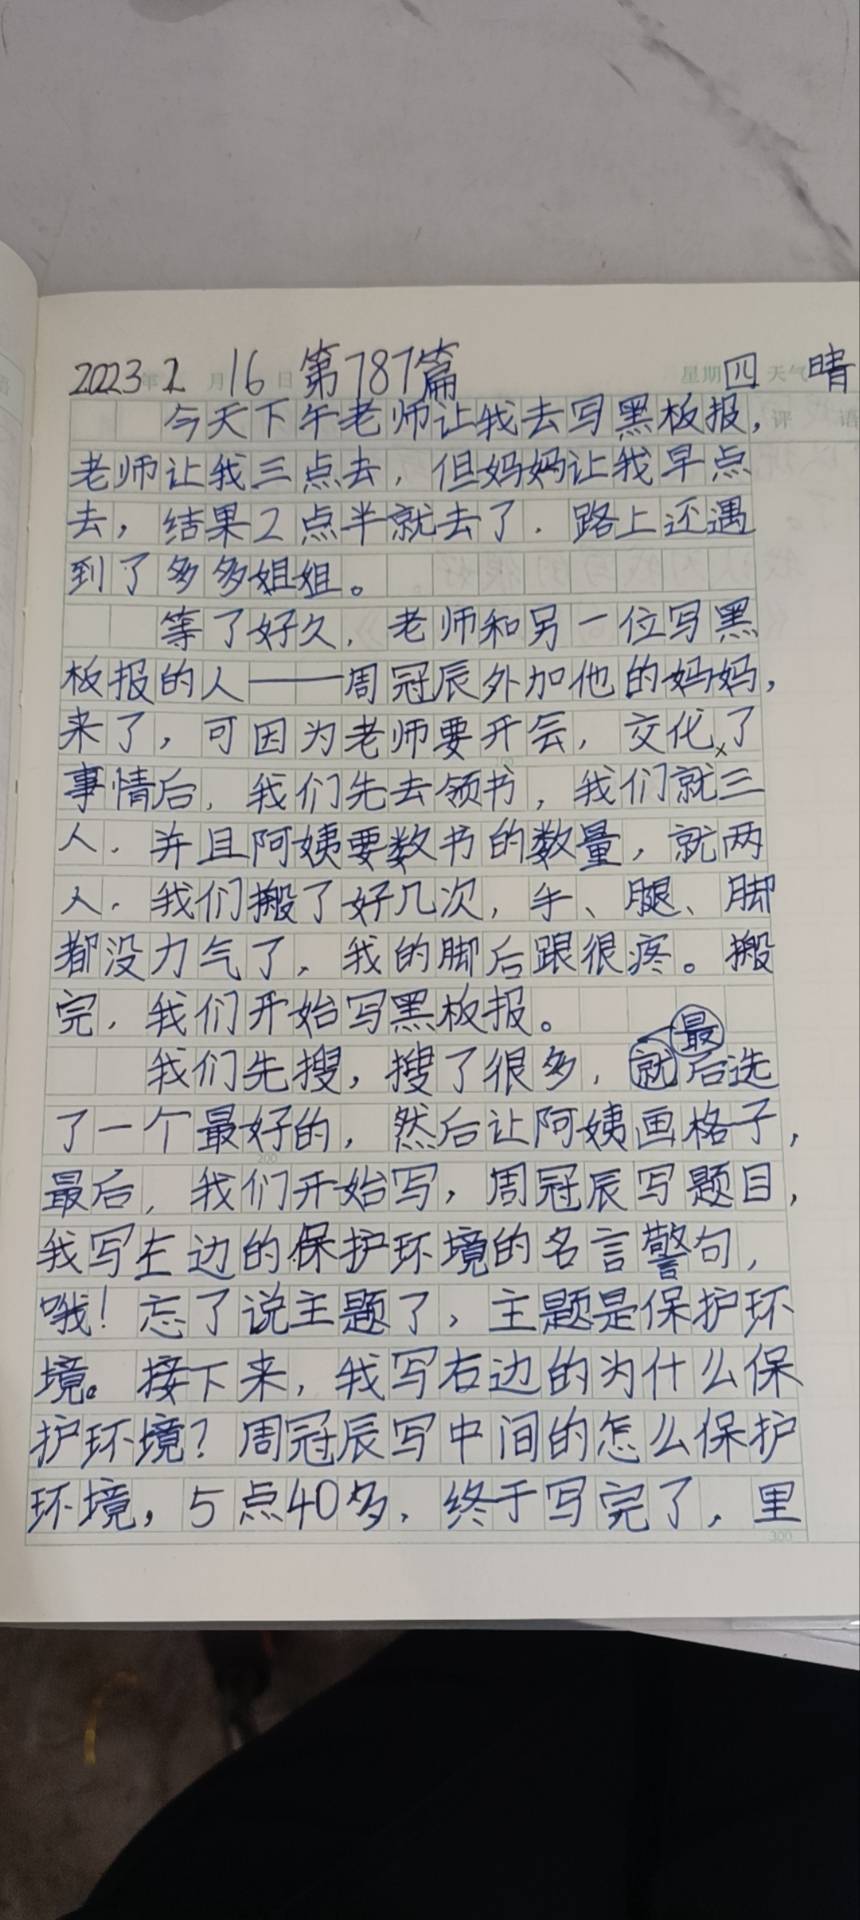 2023年2月16日 第787篇 星期四 天气晴
今天下午老师让我去写黑板报，评语
老师让我三点去，但妈妈让我早点
去，结果2点半就去了．路上还遇
到了多多姐姐。
等了好久，老师和另一位写黑
板报的人——周冠辰外加他的妈妈，
来了，可因为老师要开会，交化了
事情后，我们先去领书，我们就三
人．并且阿姨要数书的数量，就两
人．我们搬了好几次，手、腿、脚
都没力气了，我的脚后跟很疼。搬
完，我们开始写黑板报。
我们先搜，搜了很多，就最后选
了一个最好的，然后让阿姨画格子，
200
最后，我们开始写，周冠辰写题目，
我写左边的保护环境的名言警句，
哦！忘了说主题了，主题是保护环
境。接下来，我写右边的为什么保
护环境？周冠辰写中间的怎么保护
环境，5点40多，终于写完了，里
300